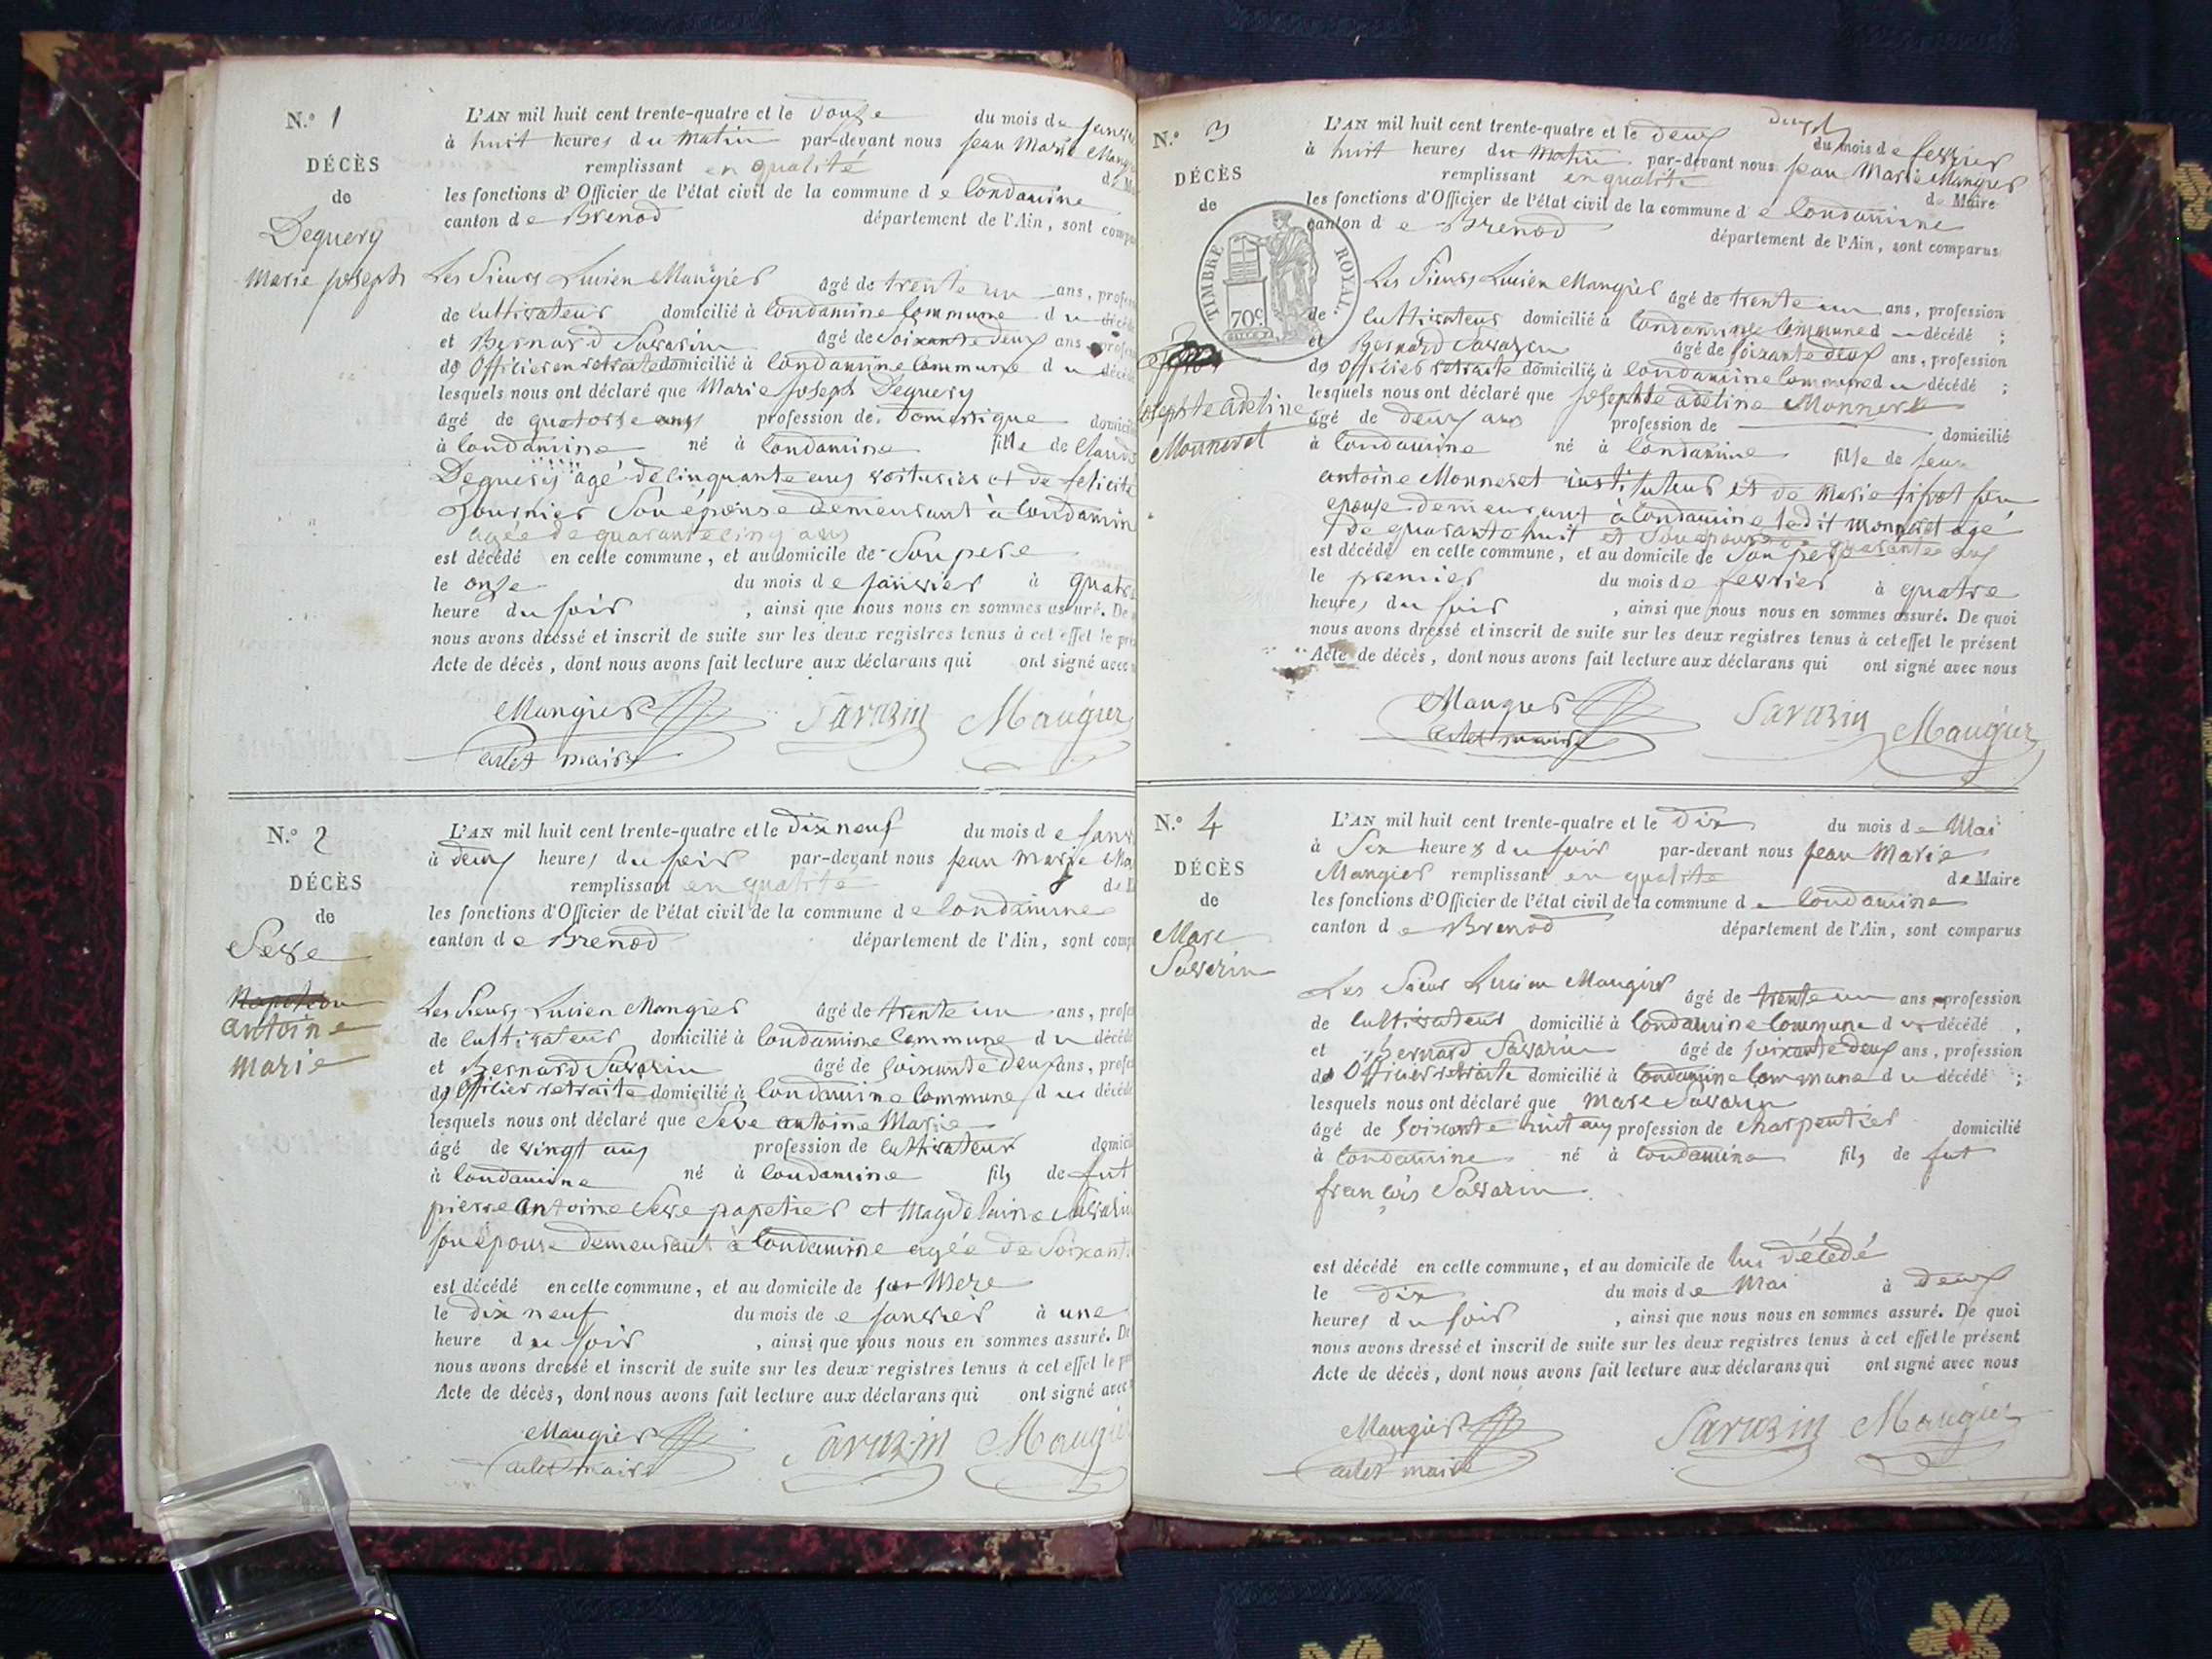 N.º 1
DÉCÈS
de
Dequery
Marie joseph
L'AN mil huit cent trente-quatre et le Douze du mois de
à huit heures du Matin par-devant nous jean Marie
remplissant en qualité
les fonctions d'Officier de l'état civil de la commune de Condamine
canton de Brenod département de l'Ain, sont
Les Sieurs Lucien Maugier âgé de trente un ans,
de Cultivateur domicilié à Condamine Commune du
et Bernard Savarin âgé de Soixante deux ans
de Officier en retraite domicilié à Condamine Commune du
lesquels nous ont déclaré que Marie joseph Dequery
âgé de quatorze ans profession de Domestique
à Condamine né à Condamine fille de
Dequery agé de Cinquante ans voiturier et de felicité
fournier Son épouse demeurant à
agée de quarante cinq ans
est décédé en cette commune, et au domicile de Son pere
le onze du mois de janvier à
heure du soir , ainsi que nous nous en sommes assuré.
nous avons dressé et inscrit de suite sur les deux registres tenus à cet effet le
Acte de décès, dont nous avons fait lecture aux déclarans qui ont signé avec
Maugier Savarin Maugier
maire
N.º 2
DÉCÈS
de
Seve
Napoléon
antoine
marie
L'AN mil huit cent trente-quatre et le Dix neuf du mois de
à deux heures du soir par-devant nous jean Marie
remplissant en qualité
les fonctions d'Officier de l'état civil de la commune de Condamine
canton de Brenod département de l'Ain, sont
Les Sieurs Lucien Maugier âgé de trente un ans,
de Cultivateur domicilié à Condamine Commune du
et Bernard Savarin âgé de Soixante deux ans,
de Officier retraite domicilié à Condamine Commune du
lesquels nous ont déclaré que Seve antoine Marie
âgé de vingt ans profession de Cultivateur
à Condamine né à Condamine fils de fut
pierre antoine Seve papetier et Magdelaine
son épouse demeurant à Condamine agée de
est décédé en cette commune, et au domicile de sa Mere
le dix neuf du mois de janvier à une
heure du soir , ainsi que nous nous en sommes assuré.
nous avons dressé et inscrit de suite sur les deux registres tenus à cet effet le
Acte de décès, dont nous avons fait lecture aux déclarans qui ont signé avec
Maugier Savarin
maire
N.º 3
DÉCÈS
de
TIMBRE ROYAL.
70c
josephte adeline
Monneret
L'AN mil huit cent trente-quatre et le deux du mois de fevrier
à huit heures du Matin par-devant nous jean Marie Maugier
remplissant en qualité de Maire
les fonctions d'Officier de l'état civil de la commune de Condamine
canton de Brenod département de l'Ain, sont comparus
Les Sieurs Lucien Maugier âgé de trente un ans, profession
de Cultivateur domicilié à Condamine Commune du décédé ;
et Bernard Savarin âgé de soixante deux ans, profession
de Officier retraite domicilié à Condamine Commune du décédé ;
lesquels nous ont déclaré que josephte adeline Monneret
âgé de deux ans profession de domicilié
à Condamine né à Condamine fille de
antoine Monneret instituteur et de Marie
epouse demeurant à Condamine ledit Monneret agé
de quarante huit et Son epouse quarante ans
est décédé en cette commune, et au domicile de Son pere
le premier du mois de fevrier à quatre
heures du soir , ainsi que nous nous en sommes assuré. De quoi
nous avons dressé et inscrit de suite sur les deux registres tenus à cet effet le présent
Acte de décès, dont nous avons fait lecture aux déclarans qui ont signé avec nous
Maugier Savarin Maugier
maire
N.º 4
DÉCÈS
de
Marc
Savarin
L'AN mil huit cent trente-quatre et le Dix du mois de Mai
à Six heures du soir par-devant nous jean Marie
Maugier remplissant en qualité de Maire
les fonctions d'Officier de l'état civil de la commune de Condamine
canton de Brenod département de l'Ain, sont comparus
Les Sieur Lucien Maugier âgé de trente un ans, profession
de Cultivateur domicilié à Condamine Commune du décédé ,
et Bernard Savarin âgé de soixante deux ans, profession
de Officier retraite domicilié à Condamine Commune du décédé ;
lesquels nous ont déclaré que Marc Savarin
âgé de soixante huit ans profession de charpentier domicilié
à Condamine né à Condamine fils de fut
françois Savarin
est décédé en cette commune, et au domicile de lui décédé
le dix du mois de Mai à deux
heures du soir , ainsi que nous nous en sommes assuré. De quoi
nous avons dressé et inscrit de suite sur les deux registres tenus à cet effet le présent
Acte de décès, dont nous avons fait lecture aux déclarans qui ont signé avec nous
Maugier Savarin Maugier
maire